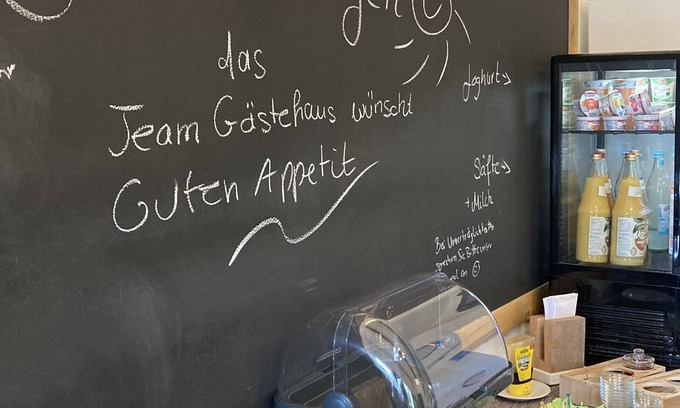 das
Team Gästehaus wünscht
Guten Appetit
Joghurt
Säfte
+ Milch
Bei Unverträglichkeiten
sprechen Sie Bitte unser
an